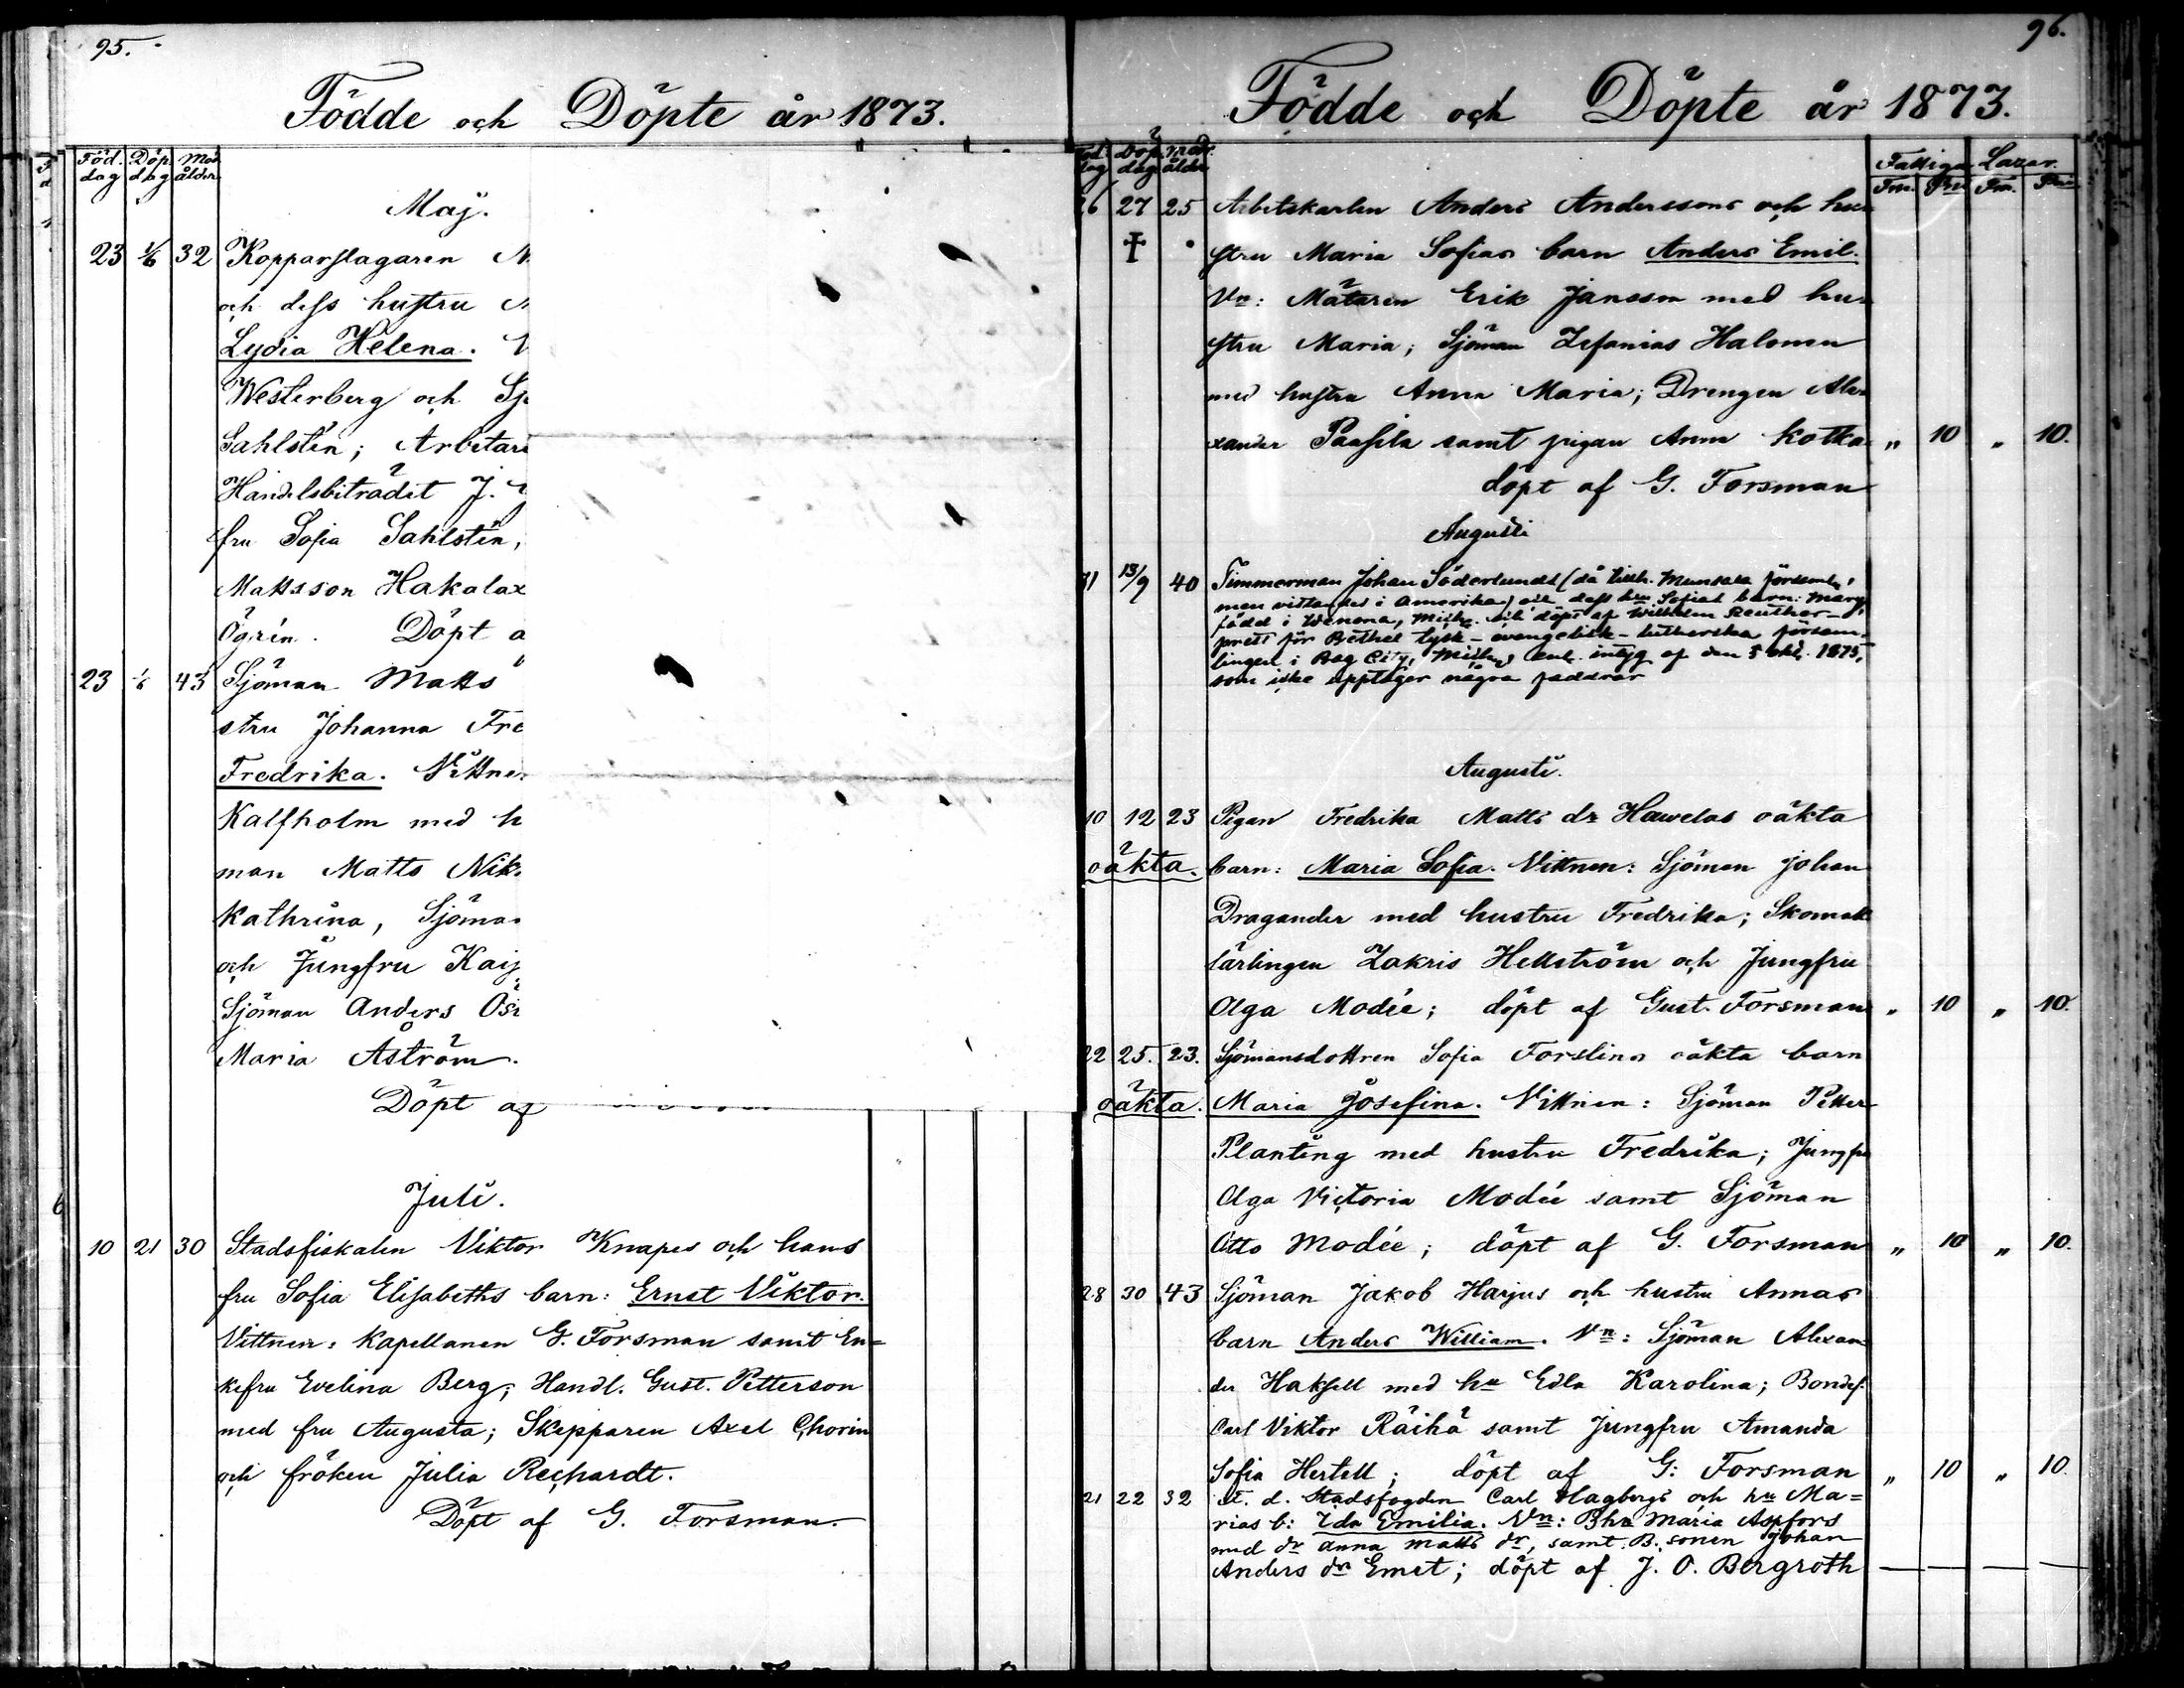 95.
Födde och Döpte år 1873.
Föd. dag Döp. dag Mod. ålder
Maj.
23 1/6 32 Kopparslagaren
och dess hustru
Lydia Helena.
Westerberg och
Sahlsten; Arbetare
Handelsbiträdet J.
fru Sofia Sahlsten,
Mattsson Hakalax
Ögrén. Döpt a
23 1/6 43 Sjöman Matts
stru Johanna Fre
Fredrika. Vittne
Kalfholm med h
man Matts Nik
Kathrina, Sjöma
och Jungfru Kaj
Sjöman Anders Ös
Maria Åström.
Döpt af
Juli.
10 21 30 Stadsfiskalen Viktor Knapes och hans
fru Sofia Elisabeths barn: Ernst Viktor.
Vittnen: Kapellanen G. Forsman samt En=
kefru Evelina Berg; Handl. Gust. Petterson
med fru Augusta; Skepparen Axel Chorin
och fröken Julia Rechardt.
Döpt af G. Forsman.
96.
Födde och Döpte år 1873.
Föd. dag Döp. dag Mod. ålder Fattiga Lazar.
26 27 25 Arbetskarlen Anders Anderssons och hu
stru Maria Sofias barn Anders Emil.
Vn: Mätaren Erik Jansson med hu
stru Maria; Sjöman Zefanias Halonen
med hustru Anna Maria; Drengen Ale
xander Paassila samt pigan Anna Kotka „ 10 „ 10.
döpt af G. Forsman
Augusti
31 13/9 40 Timmerman Johan Söderlunds (då tillh. Munsala församl.
men vistandes i Amerika) och dess hru Sofias barn: Mary
född i Wenona, Mich. och döpt af Wilhelm Reuther
prest för Bethel tysk-evangelisk-lutherska försam-
lingen i Bay City, Mich. enl. intyg af den 5 okt. 1875,
som icke upptager några faddrar
Augusti.
10 12 23 Pigan Fredrika Matts dr Hawelas oäkta
oäkta. barn: Maria Sofia. Vittnen: Sjöman Johan
Dragander med hustru Fredrika; Skomak
lärlingen Zakris Hellström och Jungfru
Olga Modée; döpt af Gust. Forsman „ 10 „ 10.
22 25. 23. Sjömansdottren Sofia Forslins oäkta barn
oäkta. Maria Josefina. Vittnen: Sjöman Petter
Planting med hustru Fredrika; Jungfru
Olga Victoria Modée samt Sjöman
Otto Modée; döpt af G. Forsman „ 10 „ 10.
28 30 43 Sjöman Jakob Harjus och hustru Annas
barn Anders William. Vn: Sjöman Alexan
der Haksell med hu Edla Karolina; Bondes.
Carl Viktor Räihä samt Jungfru Amanda
Sofia Hertell; döpt af G: Forsman „ 10 „ 10.
21 22 32 T. d. Stadsfogden Carl Hagbergs och hu Ma=
rias b: Ida Emilia. Vn: Bhu Maria Aspfors
med dr Anna Matts dr, samt B. sonen Johan
Anders dn Emet; döpt af J. O. Bergroth